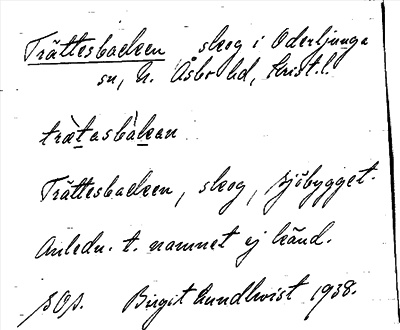 Trättesbacken skog i Oderljunga
sn, N. Åsbo hd, Krist. l.
trætasbàkan
Trättesbacken, skog, sjöbygget.
Anledn. t. namnet ej känd.
Birgit Lundkvist 1938.